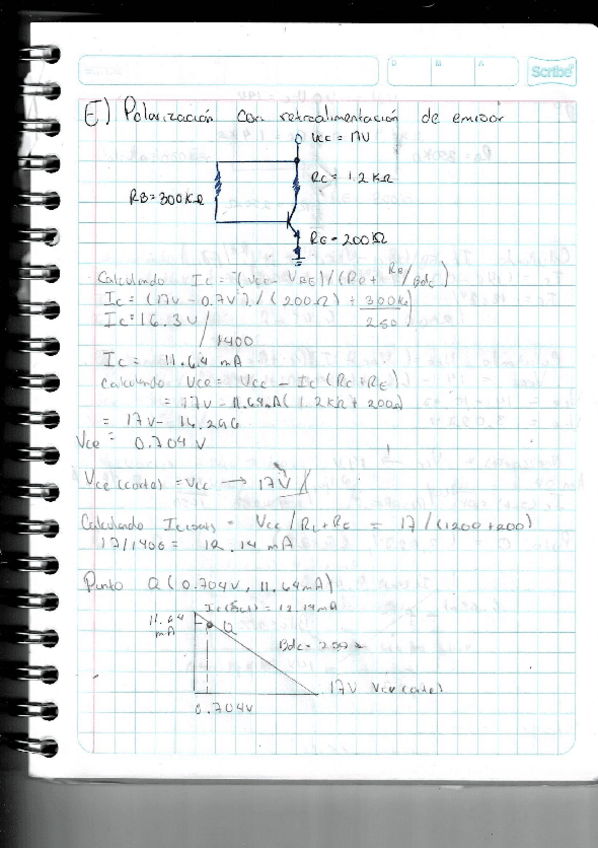 D M A
Scribe
E) Polarización con retroalimentación de emisor
Vcc = 17V
Rc = 1.2 KΩ
RB = 300KΩ
RE = 200Ω
Calculando Ic = (Vcc - VBE) / (RE + RB/βdc)
Ic = (17V - 0.7V) / (200Ω) + 300K/250)
Ic = 16.3V / 1400
Ic = 11.64 mA
Calculando Vce = Vcc - Ic (Rc + RE)
= 17V - 11.64mA (1.2KΩ + 200Ω)
= 17V - 16.296
Vce = 0.704 V
Vce (corte) = Vcc → 17V
Calculando Ic(sat) = Vcc / RL + RE = 17 / (1200 + 200)
17/1400 = 12.14 mA
Punto Q (0.704V, 11.64mA)
Ic(sat) = 12.14mA
11.64 mA
Q
Bdc = 250
17V Vce (corte)
0.704V